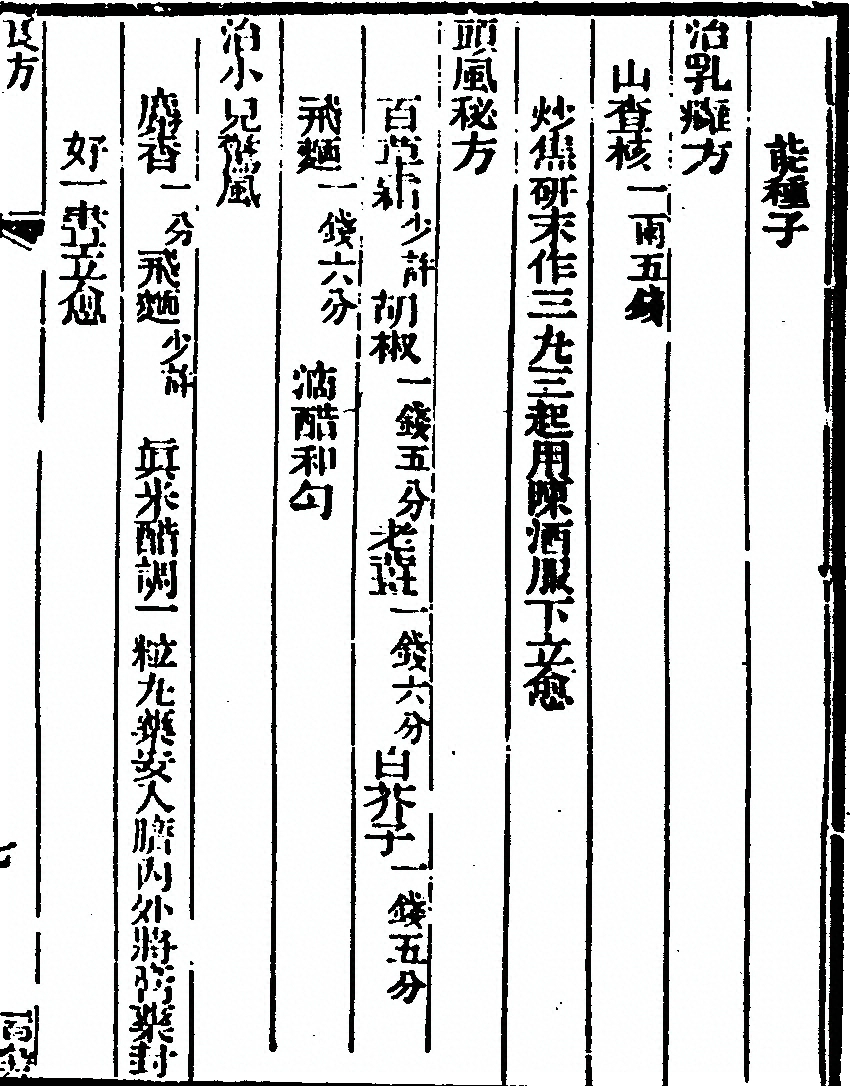 能種子
治乳癰方
山查核一两五錢
炒焦研末作三九三起用陳酒服下立愈
頭風秘方
百草霜少許胡椒一錢五分老薑一錢六分白芥子一錢五分
飛麵一錢六分 滴醋和勻
治小兒驚風
麝香一分飛麵少許 眞米醋調一粒九藥安人臍內外將膏藥封
好一晝立愈
良方